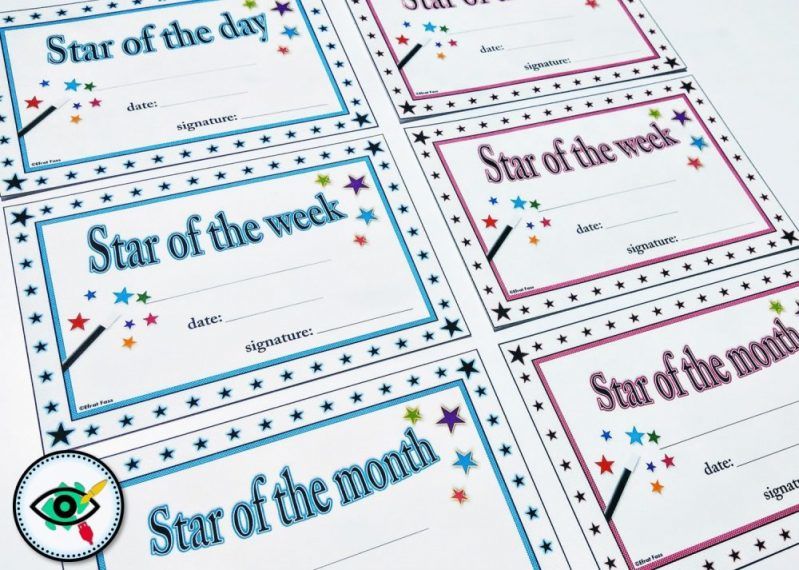 Star of the day
date:
signature:
©Efrat Fass
Star of the
date:
signature:
©Efrat Fass
Star of the week
date:
signature:
©Efrat Fass
Star of the week
date:
signature:
©Efrat Fass
Star of the month
Star of the month
date:
signature:
©Efrat Fass